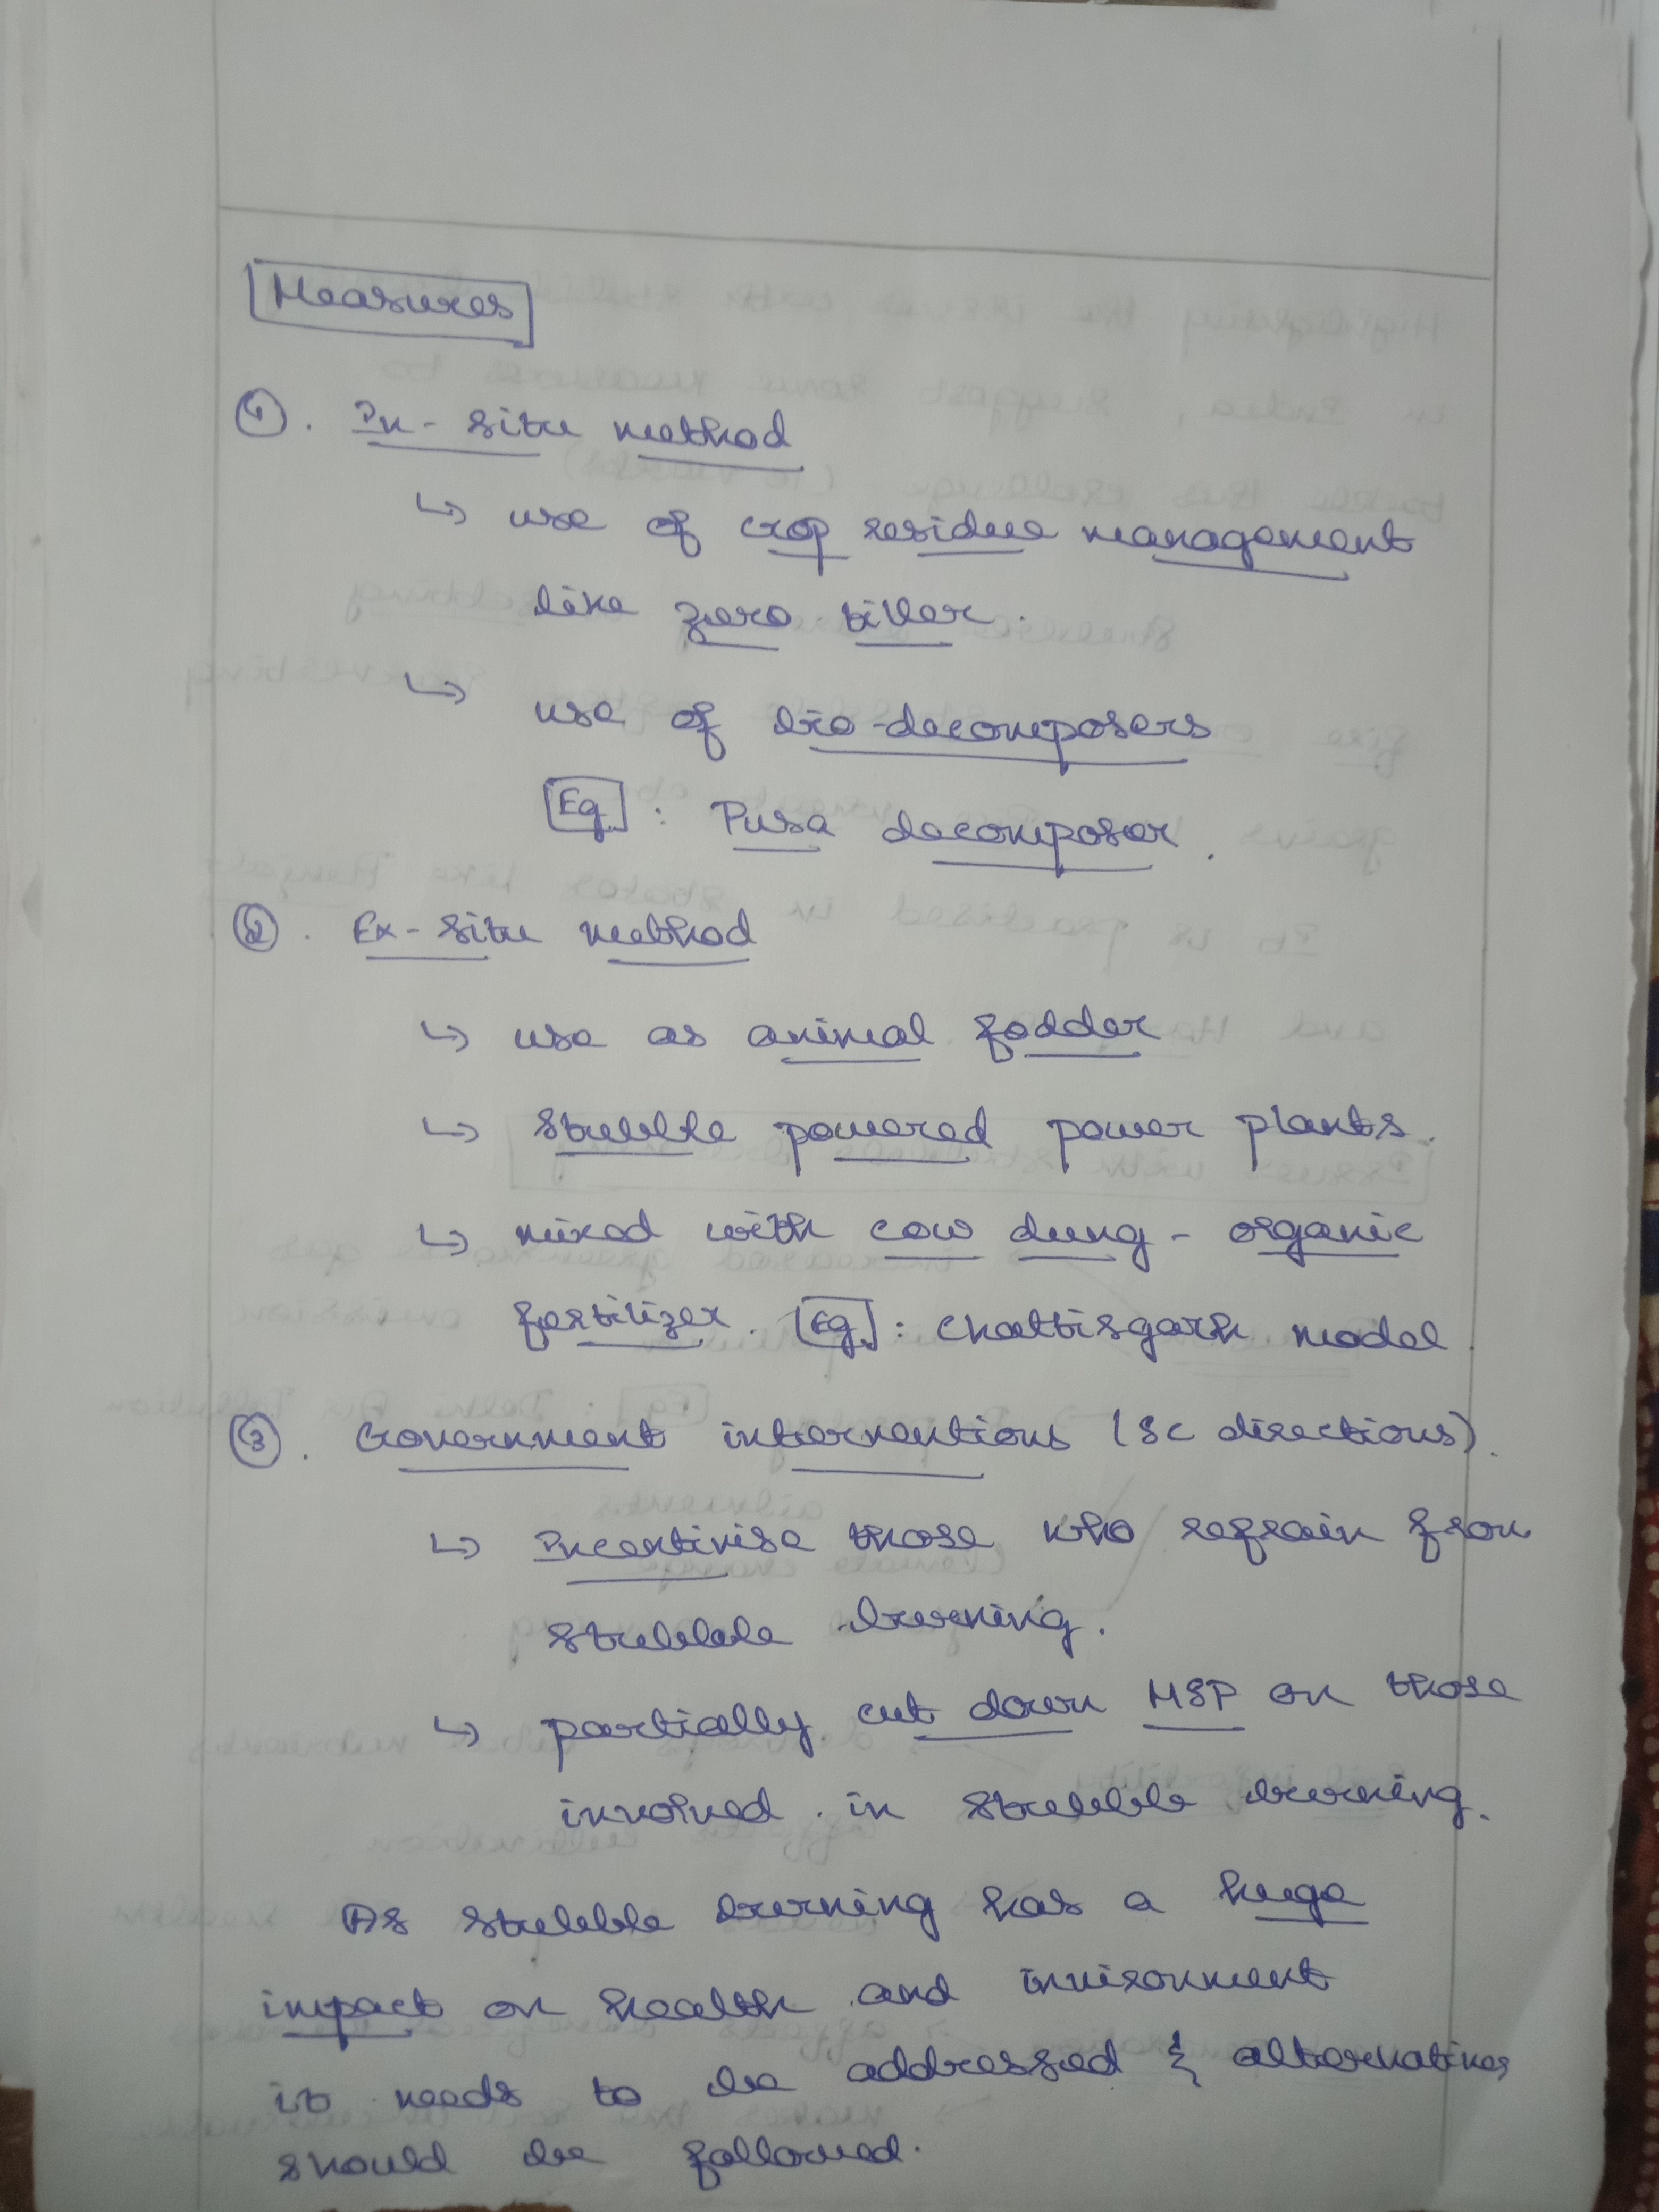 Measures
1. In-situ method
↳ use of crop residue management
like zero tiller.
↳ use of bio-decomposers
Eg : Pusa decomposer.
2. Ex-situ method
↳ use as animal fodder
↳ stubble powered power plants.
↳ mixed with cow dung - organic
fertilizer. Eg : Chattisgarh model.
3. Government interventions (SC directions).
↳ Incentivise those who refrain from
stubble burning.
↳ partially cut down MSP on those
involved in stubble burning.
As stubble burning has a huge
impact on health and invironment
it needs to be addressed & alternatives
should be followed.